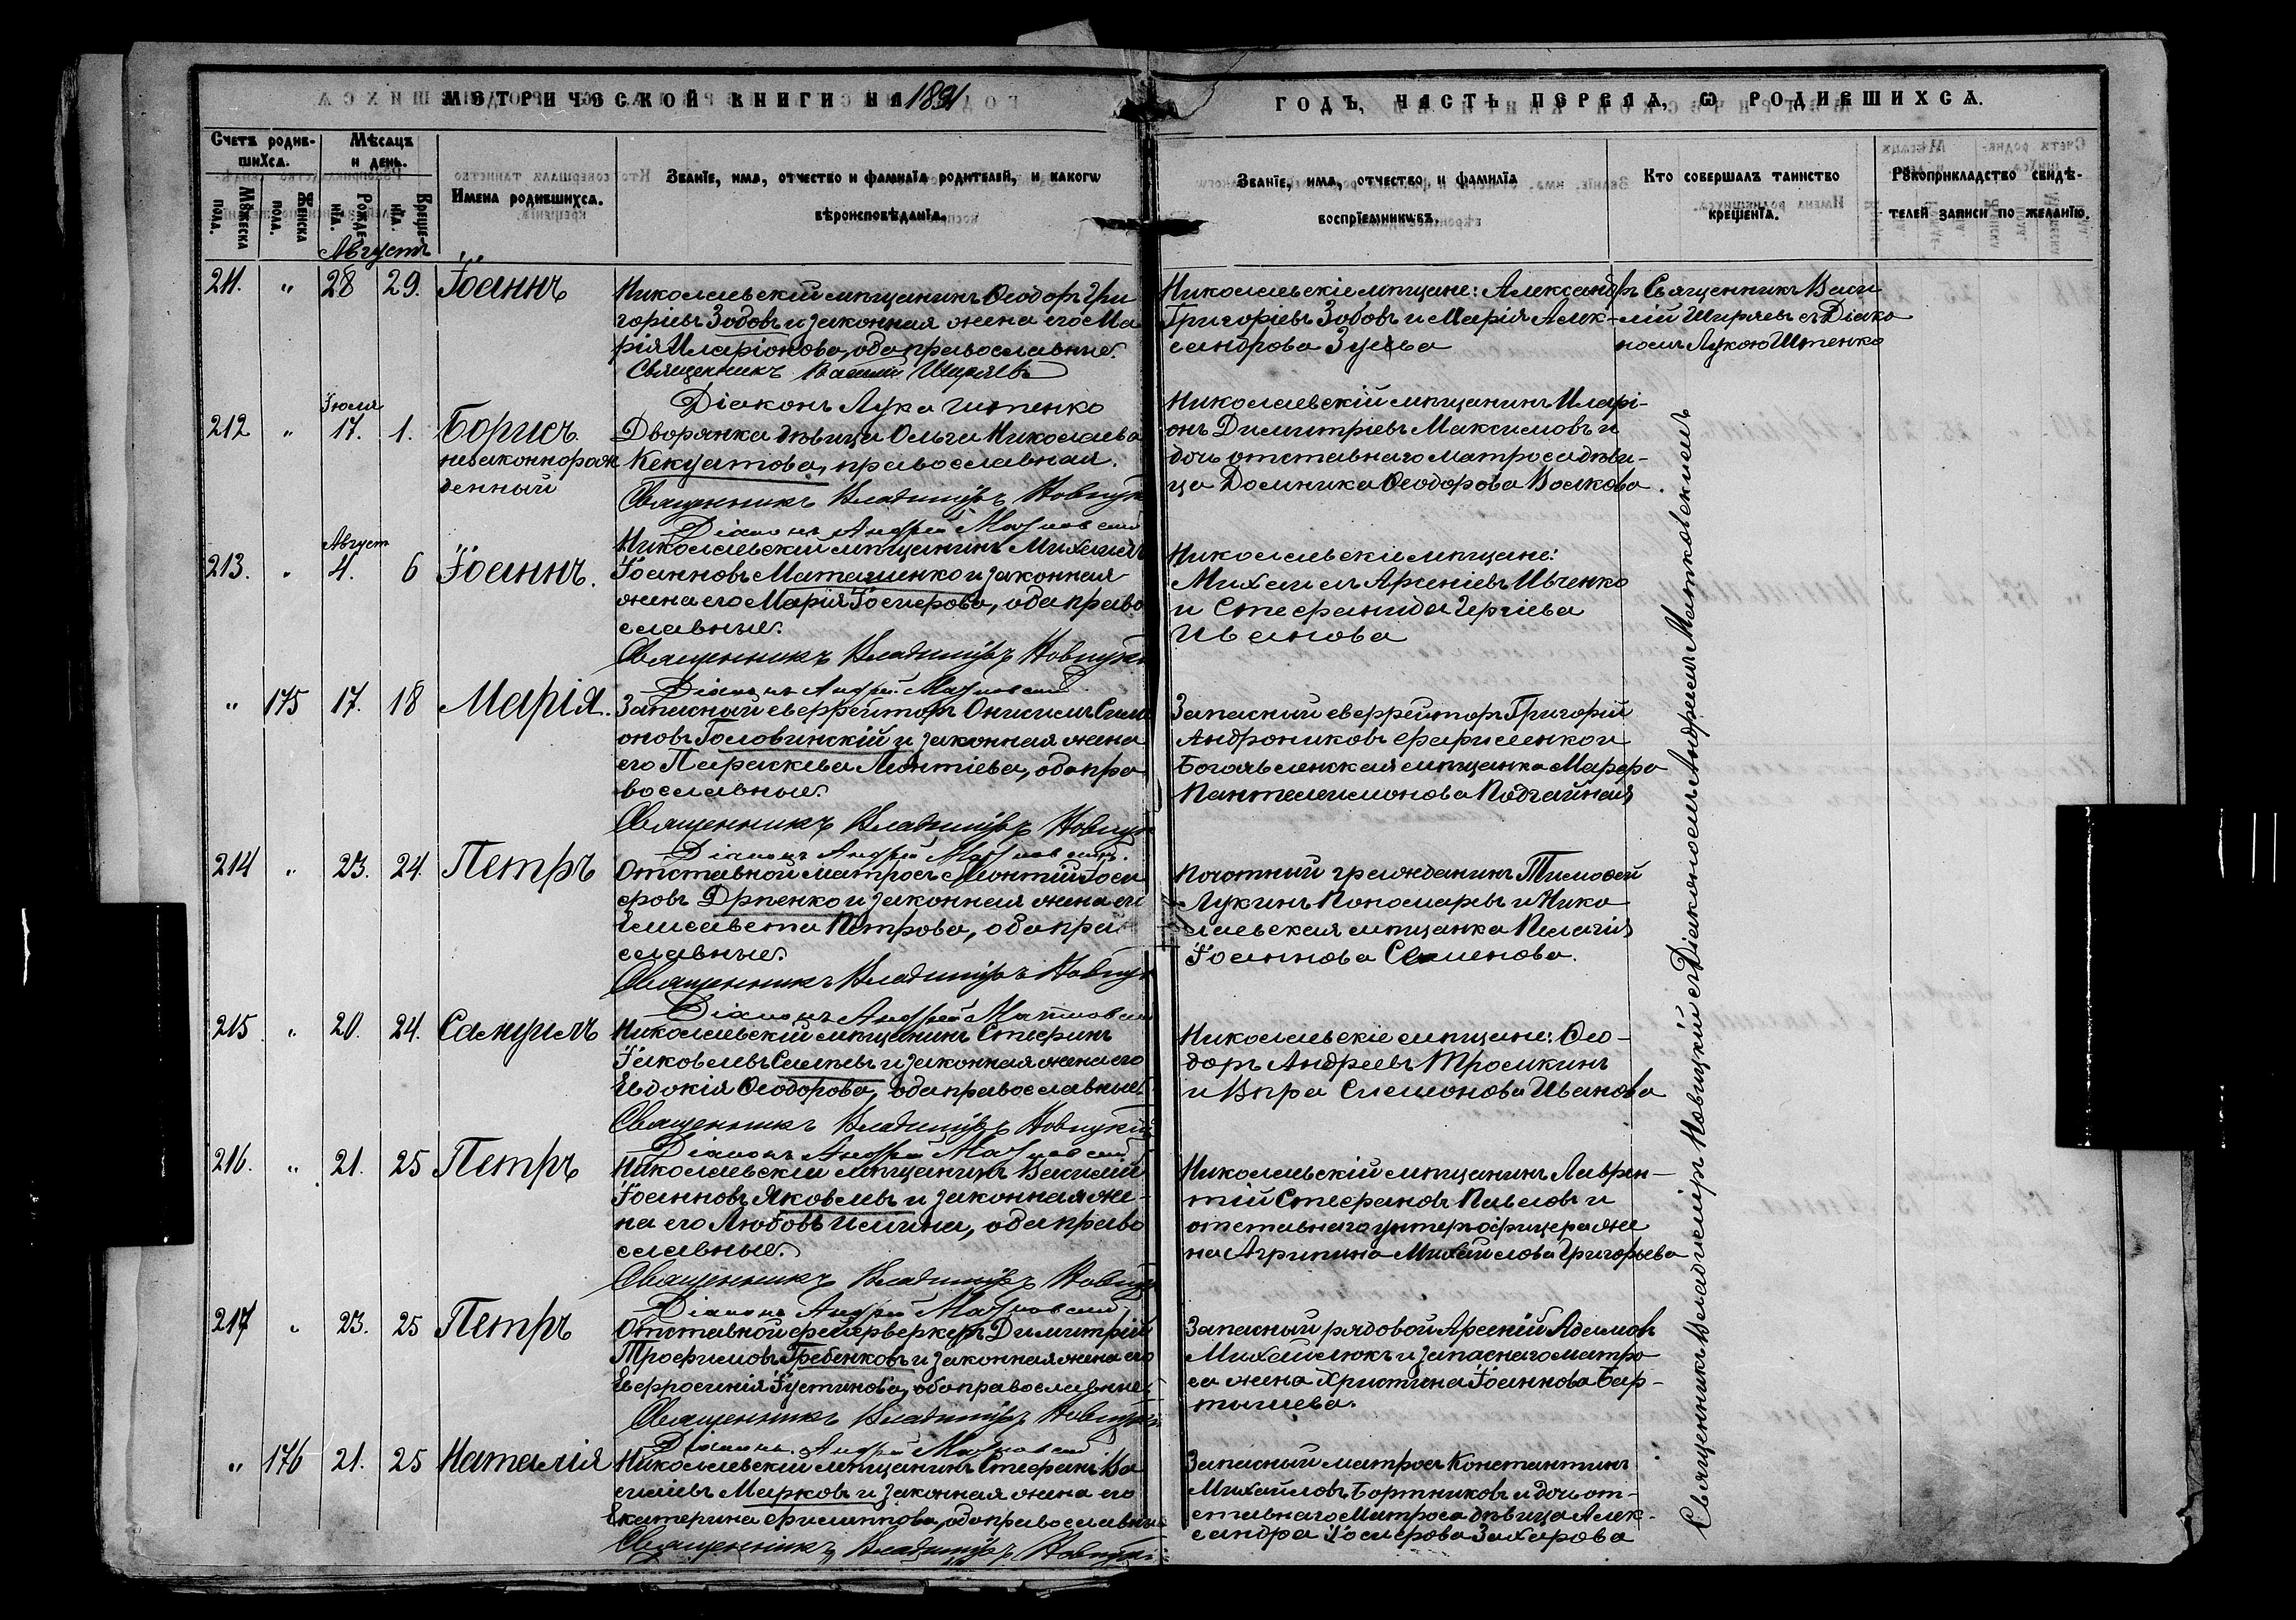 МЕТРИЧЕСКОЙ КНИГИ НА 1891
ГОДЪ, ЧАСТЬ ПЕРВАЯ, Ѡ РОДИВШИХСЯ.
Счетъ родив-
шихся.
Мужеска пола.
Женска пола.
Мѣсяцъ
и день.
Рожде-
нїа.
Креще-
нїа.
Имена родившихся.
Званїе, имя, отчество и фамилїа родителей, и какогѡ
вѣроисповѣданїа.
Званїе, имя, отчество и фамилїа
воспрїемникѡвъ.
Кто совершалъ таинство
крещенїа.
Рꙋкоприкладство свидѣ-
телей записи по желанїю.
Августъ
211. " 28 29. Іоаннъ
Николаевскій мѣщанинъ Ѳеодоръ Гри
горіевъ Зодовъ и законная жена его Ма
рія Иларіонова, оба православные.
Священникъ Василій Ширяевъ
Діаконъ Лука Штенко
Николаевскіе мѣщане: Александръ
Григоріевъ Зобовъ и Марія Алек-
сандрова Зуева
Священникъ Васи
лій Ширяевъ съ Діако
номъ Лукою Штенко
Іюля
212 " 17. 1. Борисъ
незаконнорож
денный
Дворянка дѣвица Ольга Николаева
Кекуатова, православная.
Священникъ Владиміръ Новицк
Діаконъ Андрей
Николаевскій мѣщанинъ Иларі-
онъ Димитріевъ Максимовъ и
дочь отставнаго матроса дѣви-
ца Домника Ѳеодорова Волкова.
Август
213. " 4. 6 Іоаннъ.
Николаевскій мѣщанинъ Михаилъ
Іоанновъ Маташенко и законная
жена его Марія Іосифова, оба право
славные.
Священникъ Владиміръ Новицк
Діаконъ Андрей
Николаевскіе мѣщане:
Михаилъ Арсеніевъ Ивченко
и Стефанида Сергіева
Иванова
" 175 17. 18 Марія.
Запасный ефрейторъ Онисимъ Симе
оновъ Головинскій и законная жена
его Параскева Леонтіева, оба пра
вославные.
Священникъ Владиміръ Новицк
Діаконъ Андрей
Запасный ефрейторъ Григорій
Андрониковъ Фариленко и
Богоявленская мѣщанка Марфа
Пантелеимонова Подгайная
214 " 23. 24. Петръ
Отставной матросъ Леонтій Іоси
фовъ Дрпенко и законная жена его
Елисавета Петрова, оба пра
славные.
Священникъ Владиміръ Новицк
Діаконъ Андрей
Почотный гражданинъ Тимоѳей
Лукинъ Пономаревъ и Нико
лаевская мѣщанка Пелагія
Іоаннова Семенова.
215 " 20. 24. Самуилъ
Николаевскій мѣщанинъ Стефанъ
Іаковлевъ и законная жена его
Евдокія Ѳеодорова, оба православные.
Священникъ Владиміръ Новицкій
Діаконъ Андрей
Николаевскіе мѣщане: Ѳео-
доръ Андреевъ Тромкинъ
и Вѣра Симонова Иванова
216. " 21. 25 Петръ
Николаевскій мѣщанинъ Василій
Іоанновъ Яковлевъ и законная же-
на его Любовь Ильина, оба право
славные.
Священникъ Владиміръ Новицк
Діаконъ Андрей
Николаевскій мѣщанинъ Лаврен-
тій Стефановъ Павловъ и
отставнаго унтеръ офицера же
на Агрипина Михайлова Григорьева
217 " 23. 25 Петръ
Отставной фейерверкеръ Димитрій
Трофимовъ Гребенковъ и законная жена его
Евфросинія Іустинова, оба православные.
Священникъ Владиміръ Новицк
Діаконъ Андрей
Запасный рядовой Арсеній Адамовъ
Михайлюкъ и запаснаго матро
са жена Христина Іоаннова Бар-
тышева.
" 176 21. 25 Наталія
Николаевскій мѣщанинъ Стефанъ Ва
сильевъ Марковъ и законная жена его
Екатерина Филиппова, оба православные
Священникъ Владиміръ Новицк
Запасный матросъ Константинъ
Михайловъ Бортниковъ и дочь от-
ставнаго матроса дѣвица Алек-
сандра Іосифова Захарова
Священникъ Владиміръ Новицкій съ Діакономъ Андреемъ Матковскимъ